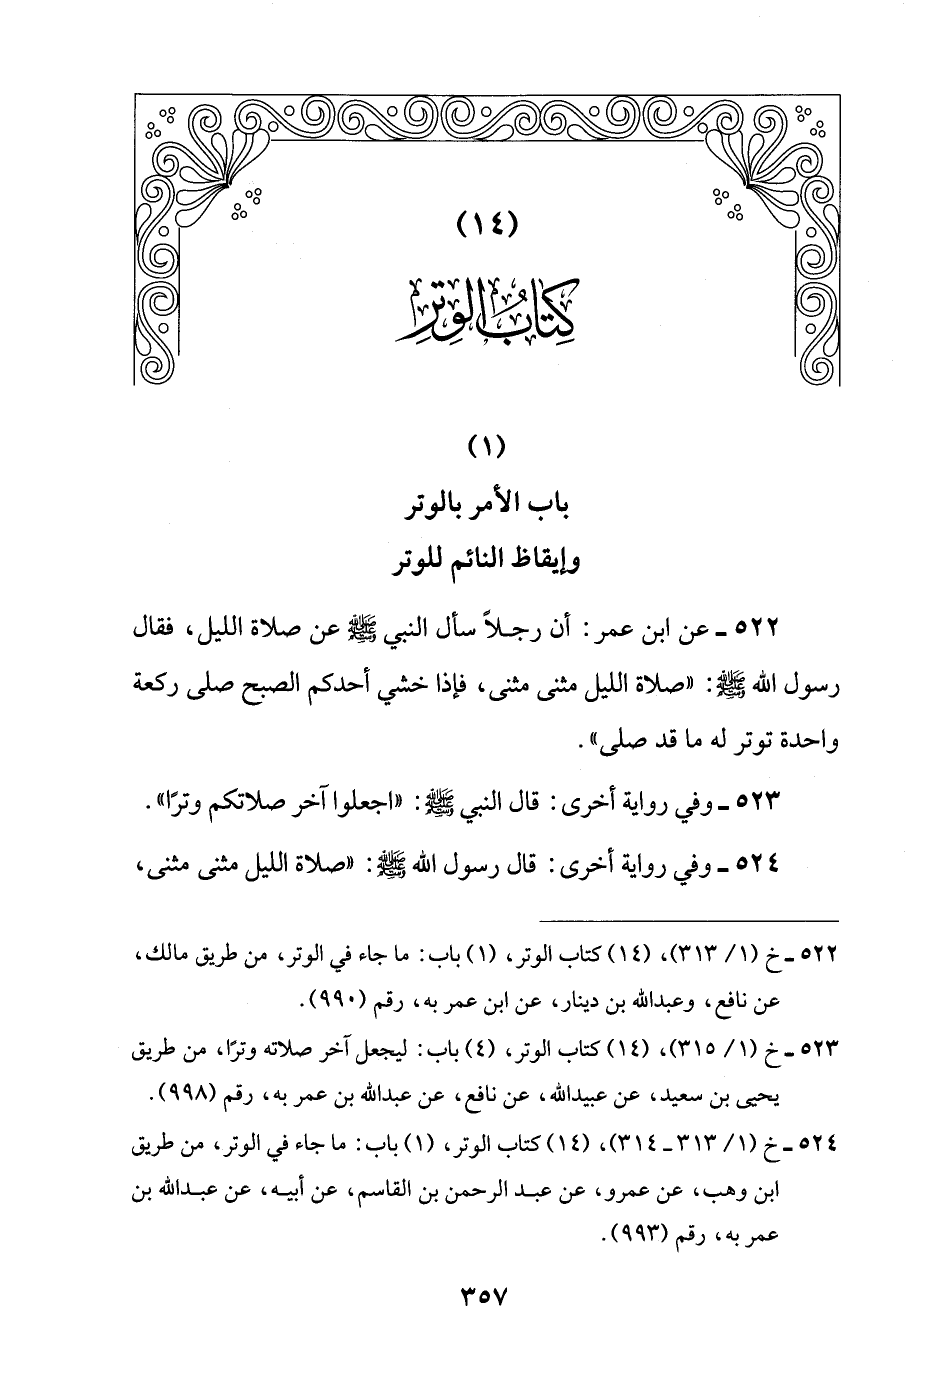 (١٤)
كِتَابُ الوِترِ
(١)
باب الأمر بالوتر
وإيقاظ النائم للوتر
٥٢٢ ـ عن ابن عمر: أن رجلاً سأل النبي ﷺ عن صلاة الليل، فقال
رسول الله ﷺ: «صلاة الليل مثنى مثنى، فإذا خشي أحدكم الصبح صلى ركعة
واحدة توتر له ما قد صلى».
٥٢٣ ـ وفي رواية أخرى: قال النبي ﷺ: «اجعلوا آخر صلاتكم وترًا».
٥٢٤ ـ وفي رواية أخرى: قال رسول الله ﷺ: «صلاة الليل مثنى مثنى،
٥٢٢ ـ خ (١/ ٣١٣)، (١٤) كتاب الوتر، (١) باب: ما جاء في الوتر، من طريق مالك،
عن نافع، وعبدالله بن دينار، عن ابن عمر به، رقم (٩٩٠).
٥٢٣ ـ خ (١/ ٣١٥)، (١٤) كتاب الوتر، (٤) باب: ليجعل آخر صلاته وترًا، من طريق
يحيى بن سعيد، عن عبيدالله، عن نافع، عن عبدالله بن عمر به، رقم (٩٩٨).
٥٢٤ ـ خ (١/ ٣١٣ ـ ٣١٤)، (١٤) كتاب الوتر، (١) باب: ما جاء في الوتر، من طريق
ابن وهب، عن عمرو، عن عبد الرحمن بن القاسم، عن أبيه، عن عبدالله بن
عمر به، رقم (٩٩٣).
٣٥٧